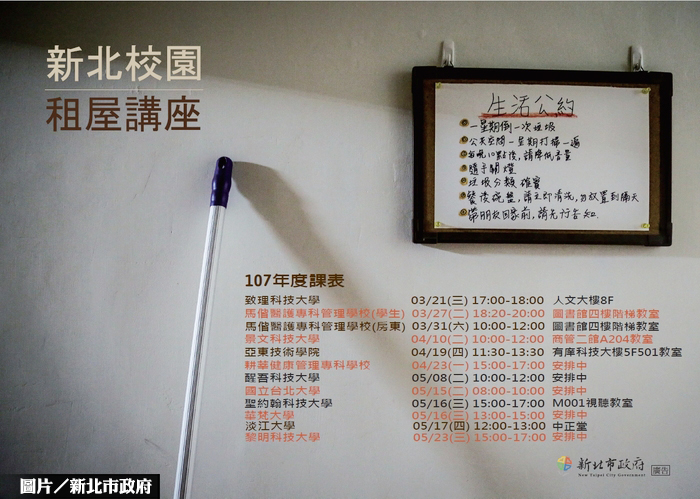 新北校園
租屋講座
生活公約
一星期倒一次垃圾
公共空間一星期打掃一遍
每晚10點後,請降低音量
隨手關燈
垃圾分類確實
餐後碗盤,請立即清洗,勿放置到隔天
帶朋友回家前,請先行告知.
107年度課表
致理科技大學 03/21(三) 17:00-18:00 人文大樓8F
馬偕醫護專科管理學校(學生) 03/27(二) 18:20-20:00 圖書館四樓階梯教室
馬偕醫護專科管理學校(房東) 03/31(六) 10:00-12:00 圖書館四樓階梯教室
景文科技大學 04/10(二) 10:00-12:00 商管二館A204教室
亞東技術學院 04/19(四) 11:30-13:30 有庠科技大樓5F501教室
耕莘健康管理專科學校 04/23(一) 15:00-17:00 安排中
醒吾科技大學 05/08(二) 10:00-12:00 安排中
國立台北大學 05/15(二) 08:00-10:00 安排中
聖約翰科技大學 05/16(三) 15:00-17:00 M001視聽教室
華梵大學 05/16(三) 13:00-15:00 安排中
淡江大學 05/17(四) 12:00-13:00 中正堂
黎明科技大學 05/23(三) 15:00-17:00 安排中
新北市政府 廣告
New Taipei City Government
圖片／新北市政府